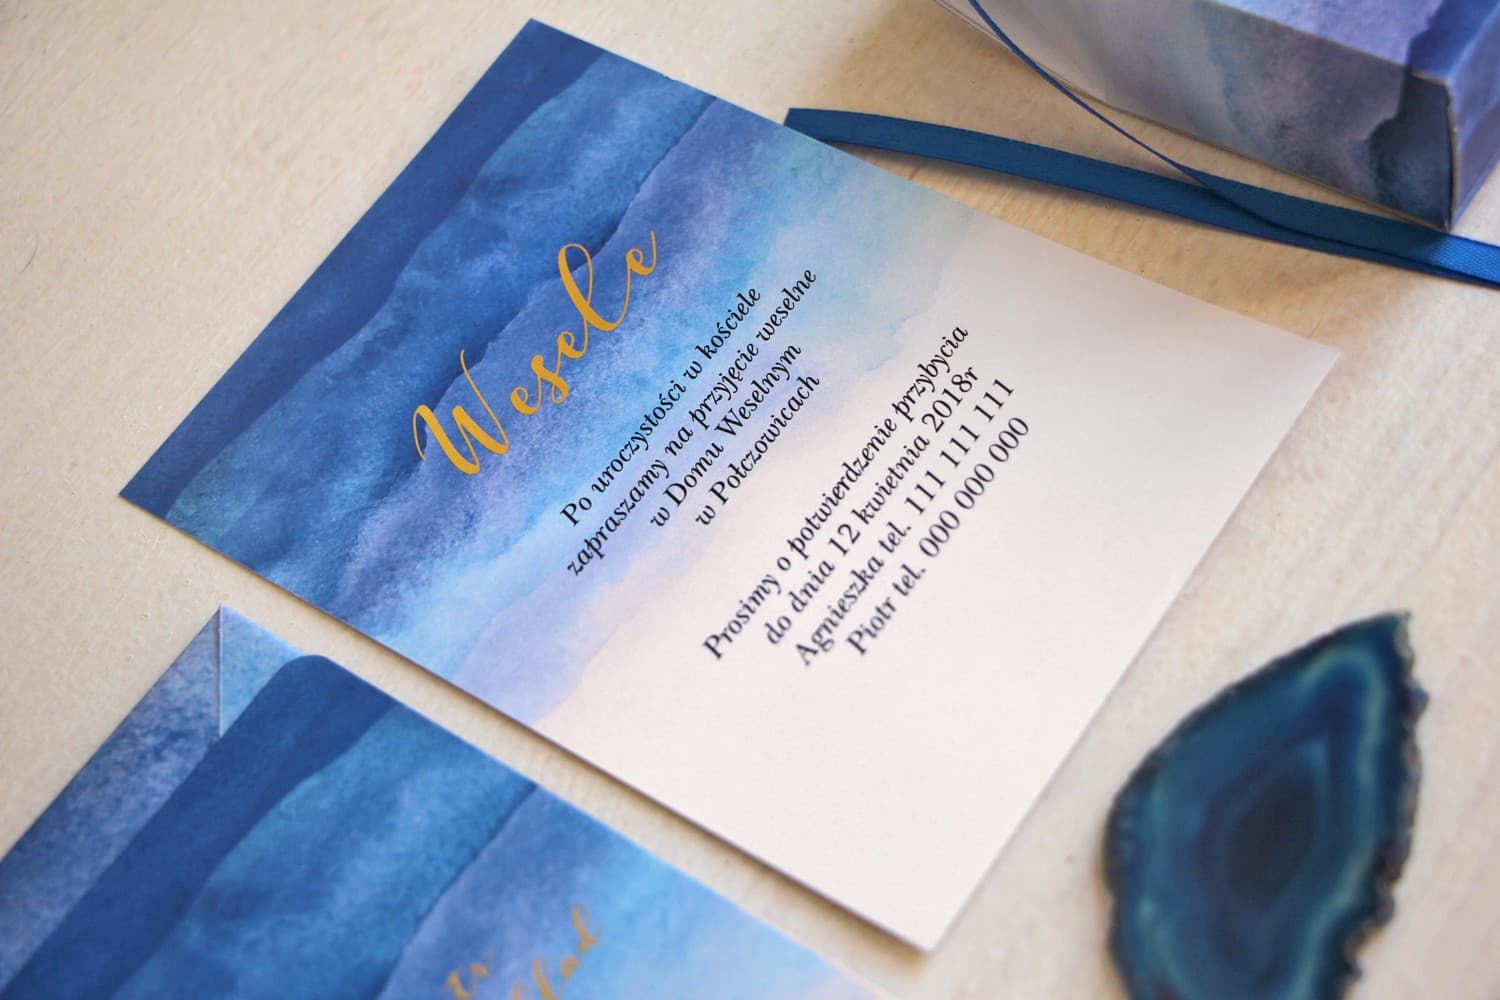 Wesele
Po uroczystości w kościele
zapraszamy na przyjęcie weselne
w Domu Weselnym
w Połczowicach
Prosimy o potwierdzenie przybycia
do dnia 12 kwietnia 2018r
Agnieszka tel. 111 111 111
Piotr tel. 000 000 000